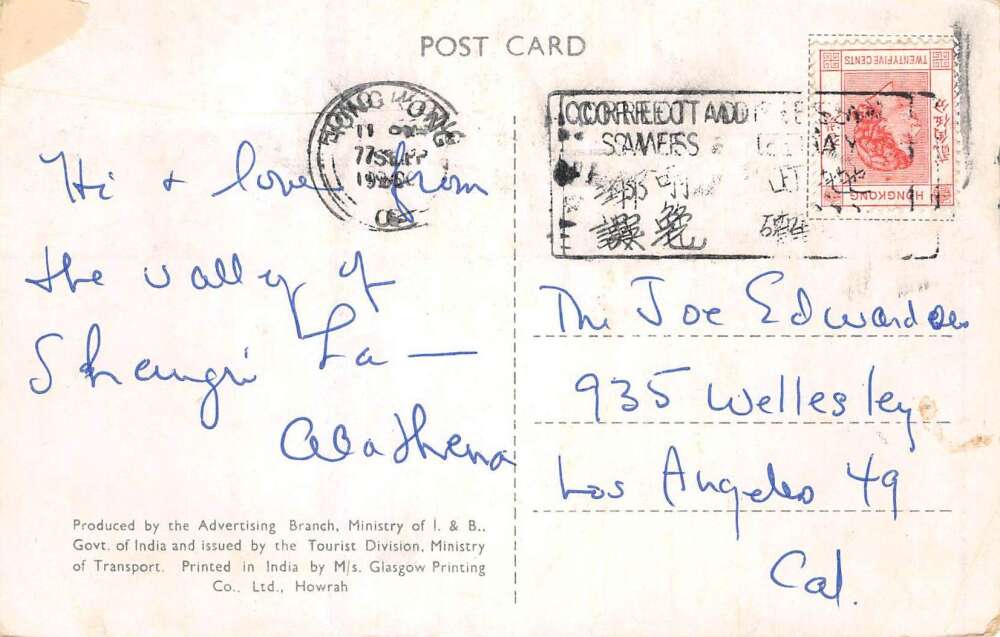 POST CARD
HONG KONG
TWENTYFIVE CENTS
HONGKONG
CORRECT ADD
SAVES
Hi & love from
the valley of
Shangri La —
Alathena
The Joe Edwardses
935 Wellesley
Los Angeles 49
Cal.
Produced by the Advertising Branch, Ministry of I. & B.,
Govt. of India and issued by the Tourist Division, Ministry
of Transport. Printed in India by M/s. Glasgow Printing
Co., Ltd., Howrah